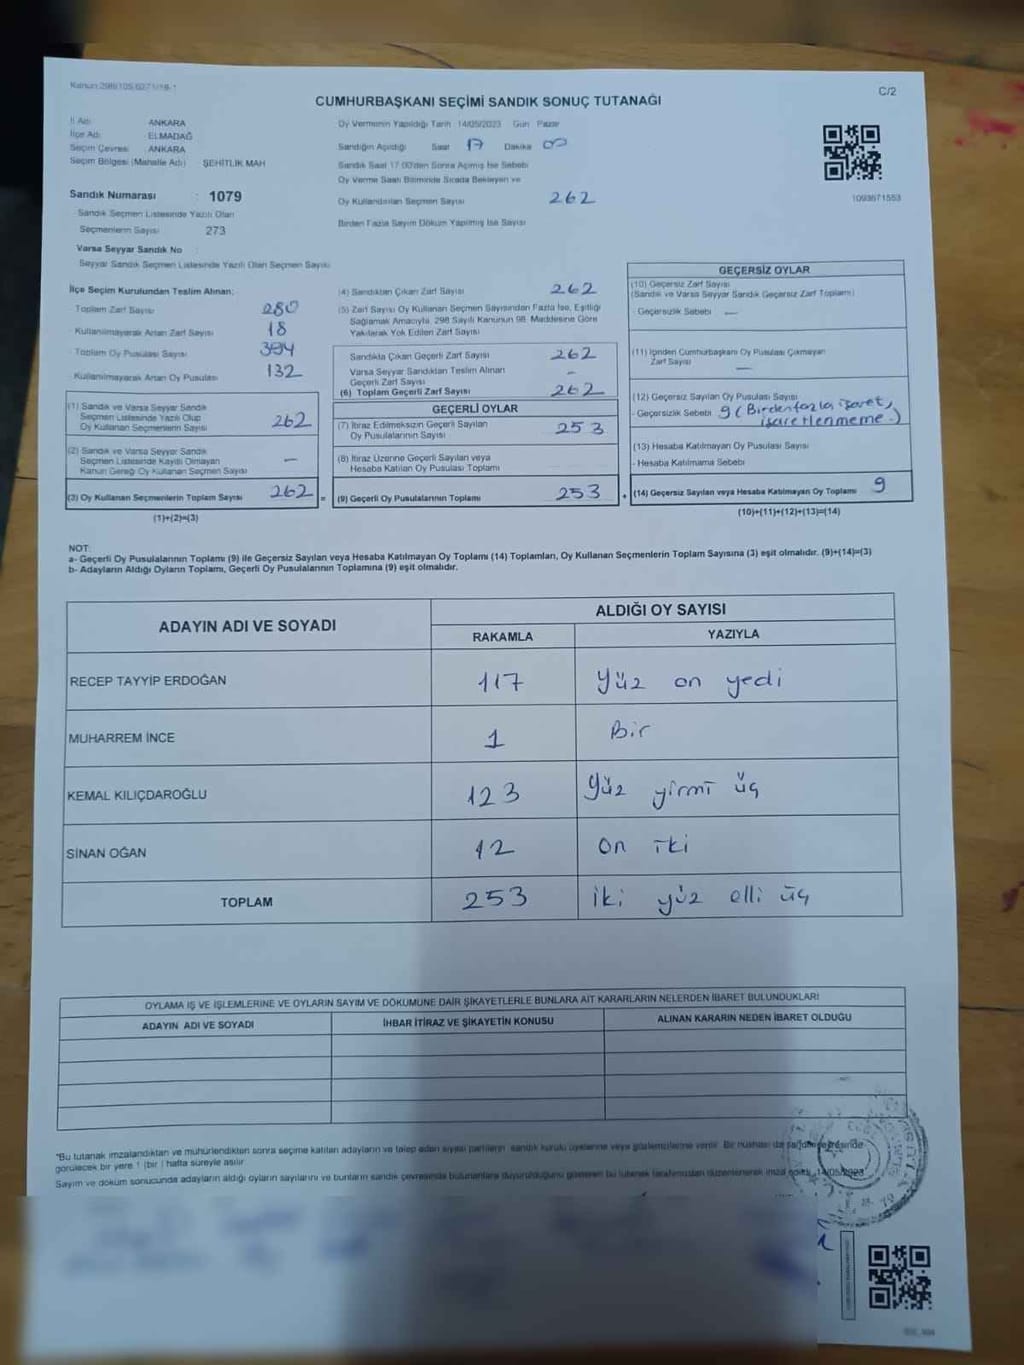 Kanun:298/105,6271/19-1
C/2
CUMHURBAŞKANI SEÇİMİ SANDIK SONUÇ TUTANAĞI
İl Adı : ANKARA
İlçe Adı : ELMADAĞ
Seçim Çevresi : ANKARA
Seçim Bölgesi (Mahalle Adı) : ŞEHİTLİK MAH
Sandık Numarası : 1079
Sandık Seçmen Listesinde Yazılı Olan
Seçmenlerin Sayısı : 273
Varsa Seyyar Sandık No :
Seyyar Sandık Seçmen Listesinde Yazılı Olan Seçmen Sayısı
Oy Vermenin Yapıldığı Tarih 14/05/2023 Gün Pazar
Sandığın Açıldığı Saat 17 Dakika 00
Sandık Saat 17:00'den Sonra Açılmış İse Sebebi
Oy Verme Saati Bitiminde Sırada Bekleyen ve
Oy Kullandırılan Seçmen Sayısı 262
Birden Fazla Sayım Döküm Yapılmış İse Sayısı
1093671553
İlçe Seçim Kurulundan Teslim Alınan:
Toplam Zarf Sayısı 280
- Kullanılmayarak Artan Zarf Sayısı 18
- Toplam Oy Pusulası Sayısı 394
- Kullanılmayarak Artan Oy Pusulası 132
(1) Sandık ve Varsa Seyyar Sandık
Seçmen Listesinde Yazılı Olup
Oy Kullanan Seçmenlerin Sayısı 262
(2) Sandık ve Varsa Seyyar Sandık
Seçmen Listesinde Kayıtlı Olmayan
Kanun Gereği Oy Kullanan Seçmen Sayısı —
(3) Oy Kullanan Seçmenlerin Toplam Sayısı 262 =
(1)+(2)=(3)
(4) Sandıktan Çıkan Zarf Sayısı 262
(5) Zarf Sayısı Oy Kullanan Seçmen Sayısından Fazla İse, Eşitliği
Sağlamak Amacıyla, 298 Sayılı Kanunun 98. Maddesine Göre
Yakılarak Yok Edilen Zarf Sayısı
Sandıkta Çıkan Geçerli Zarf Sayısı 262
Varsa Seyyar Sandıktan Teslim Alınan
Geçerli Zarf Sayısı -
(6) Toplam Geçerli Zarf Sayısı 262
GEÇERLİ OYLAR
(7) İtiraz Edilmeksizin Geçerli Sayılan
Oy Pusulalarının Sayısı 253
(8) İtiraz Üzerine Geçerli Sayılan veya
Hesaba Katılan Oy Pusulası Toplamı
(9) Geçerli Oy Pusulalarının Toplamı 253 +
GEÇERSİZ OYLAR
(10) Geçersiz Zarf Sayısı
(Sandık ve Varsa Seyyar Sandık Geçersiz Zarf Toplamı)
- Geçersizlik Sebebi —
(11) İçinden Cumhurbaşkanı Oy Pusulası Çıkmayan
Zarf Sayısı —
(12) Geçersiz Sayılan Oy Pusulası Sayısı
- Geçersizlik Sebebi 9 (Birden fazla işaret,
işaretlenmeme.)
(13) Hesaba Katılmayan Oy Pusulası Sayısı
- Hesaba Katılmama Sebebi
(14) Geçersiz Sayılan veya Hesaba Katılmayan Oy Toplamı 9
(10)+(11)+(12)+(13)=(14)
NOT:
a- Geçerli Oy Pusulalarının Toplamı (9) ile Geçersiz Sayılan veya Hesaba Katılmayan Oy Toplamı (14) Toplamları, Oy Kullanan Seçmenlerin Toplam Sayısına (3) eşit olmalıdır. (9)+(14)=(3)
b- Adayların Aldığı Oyların Toplamı, Geçerli Oy Pusulalarının Toplamına (9) eşit olmalıdır.
ADAYIN ADI VE SOYADI
ALDIĞI OY SAYISI
RAKAMLA YAZIYLA
RECEP TAYYİP ERDOĞAN 117 Yüz on yedi
MUHARREM İNCE 1 Bir
KEMAL KILIÇDAROĞLU 123 Yüz yirmi üç
SİNAN OĞAN 12 On iki
TOPLAM 253 iki yüz elli üç
OYLAMA İŞ VE İŞLEMLERİNE VE OYLARIN SAYIM VE DÖKÜMÜNE DAİR ŞİKAYETLERLE BUNLARA AİT KARARLARIN NELERDEN İBARET BULUNDUKLARI
ADAYIN ADI VE SOYADI İHBAR İTİRAZ VE ŞİKAYETİN KONUSU ALINAN KARARIN NEDEN İBARET OLDUĞU
*Bu tutanak imzalandıktan ve mühürlendikten sonra seçime katılan adayların ve talep eden siyasi partilerin sandık kurulu üyelerine veya gözlemcilerine verilir. Bir nüshası da
görülecek bir yere 1 (bir) hafta süreyle asılır.
Sayım ve döküm sonucunda adayların aldığı oyların sayılarını ve bunların sandık çevresinde bulunanlara duyurulduğunu gösteren bu tutanak tarafımızdan düzenlenerek imza edildi. 14/05/2023